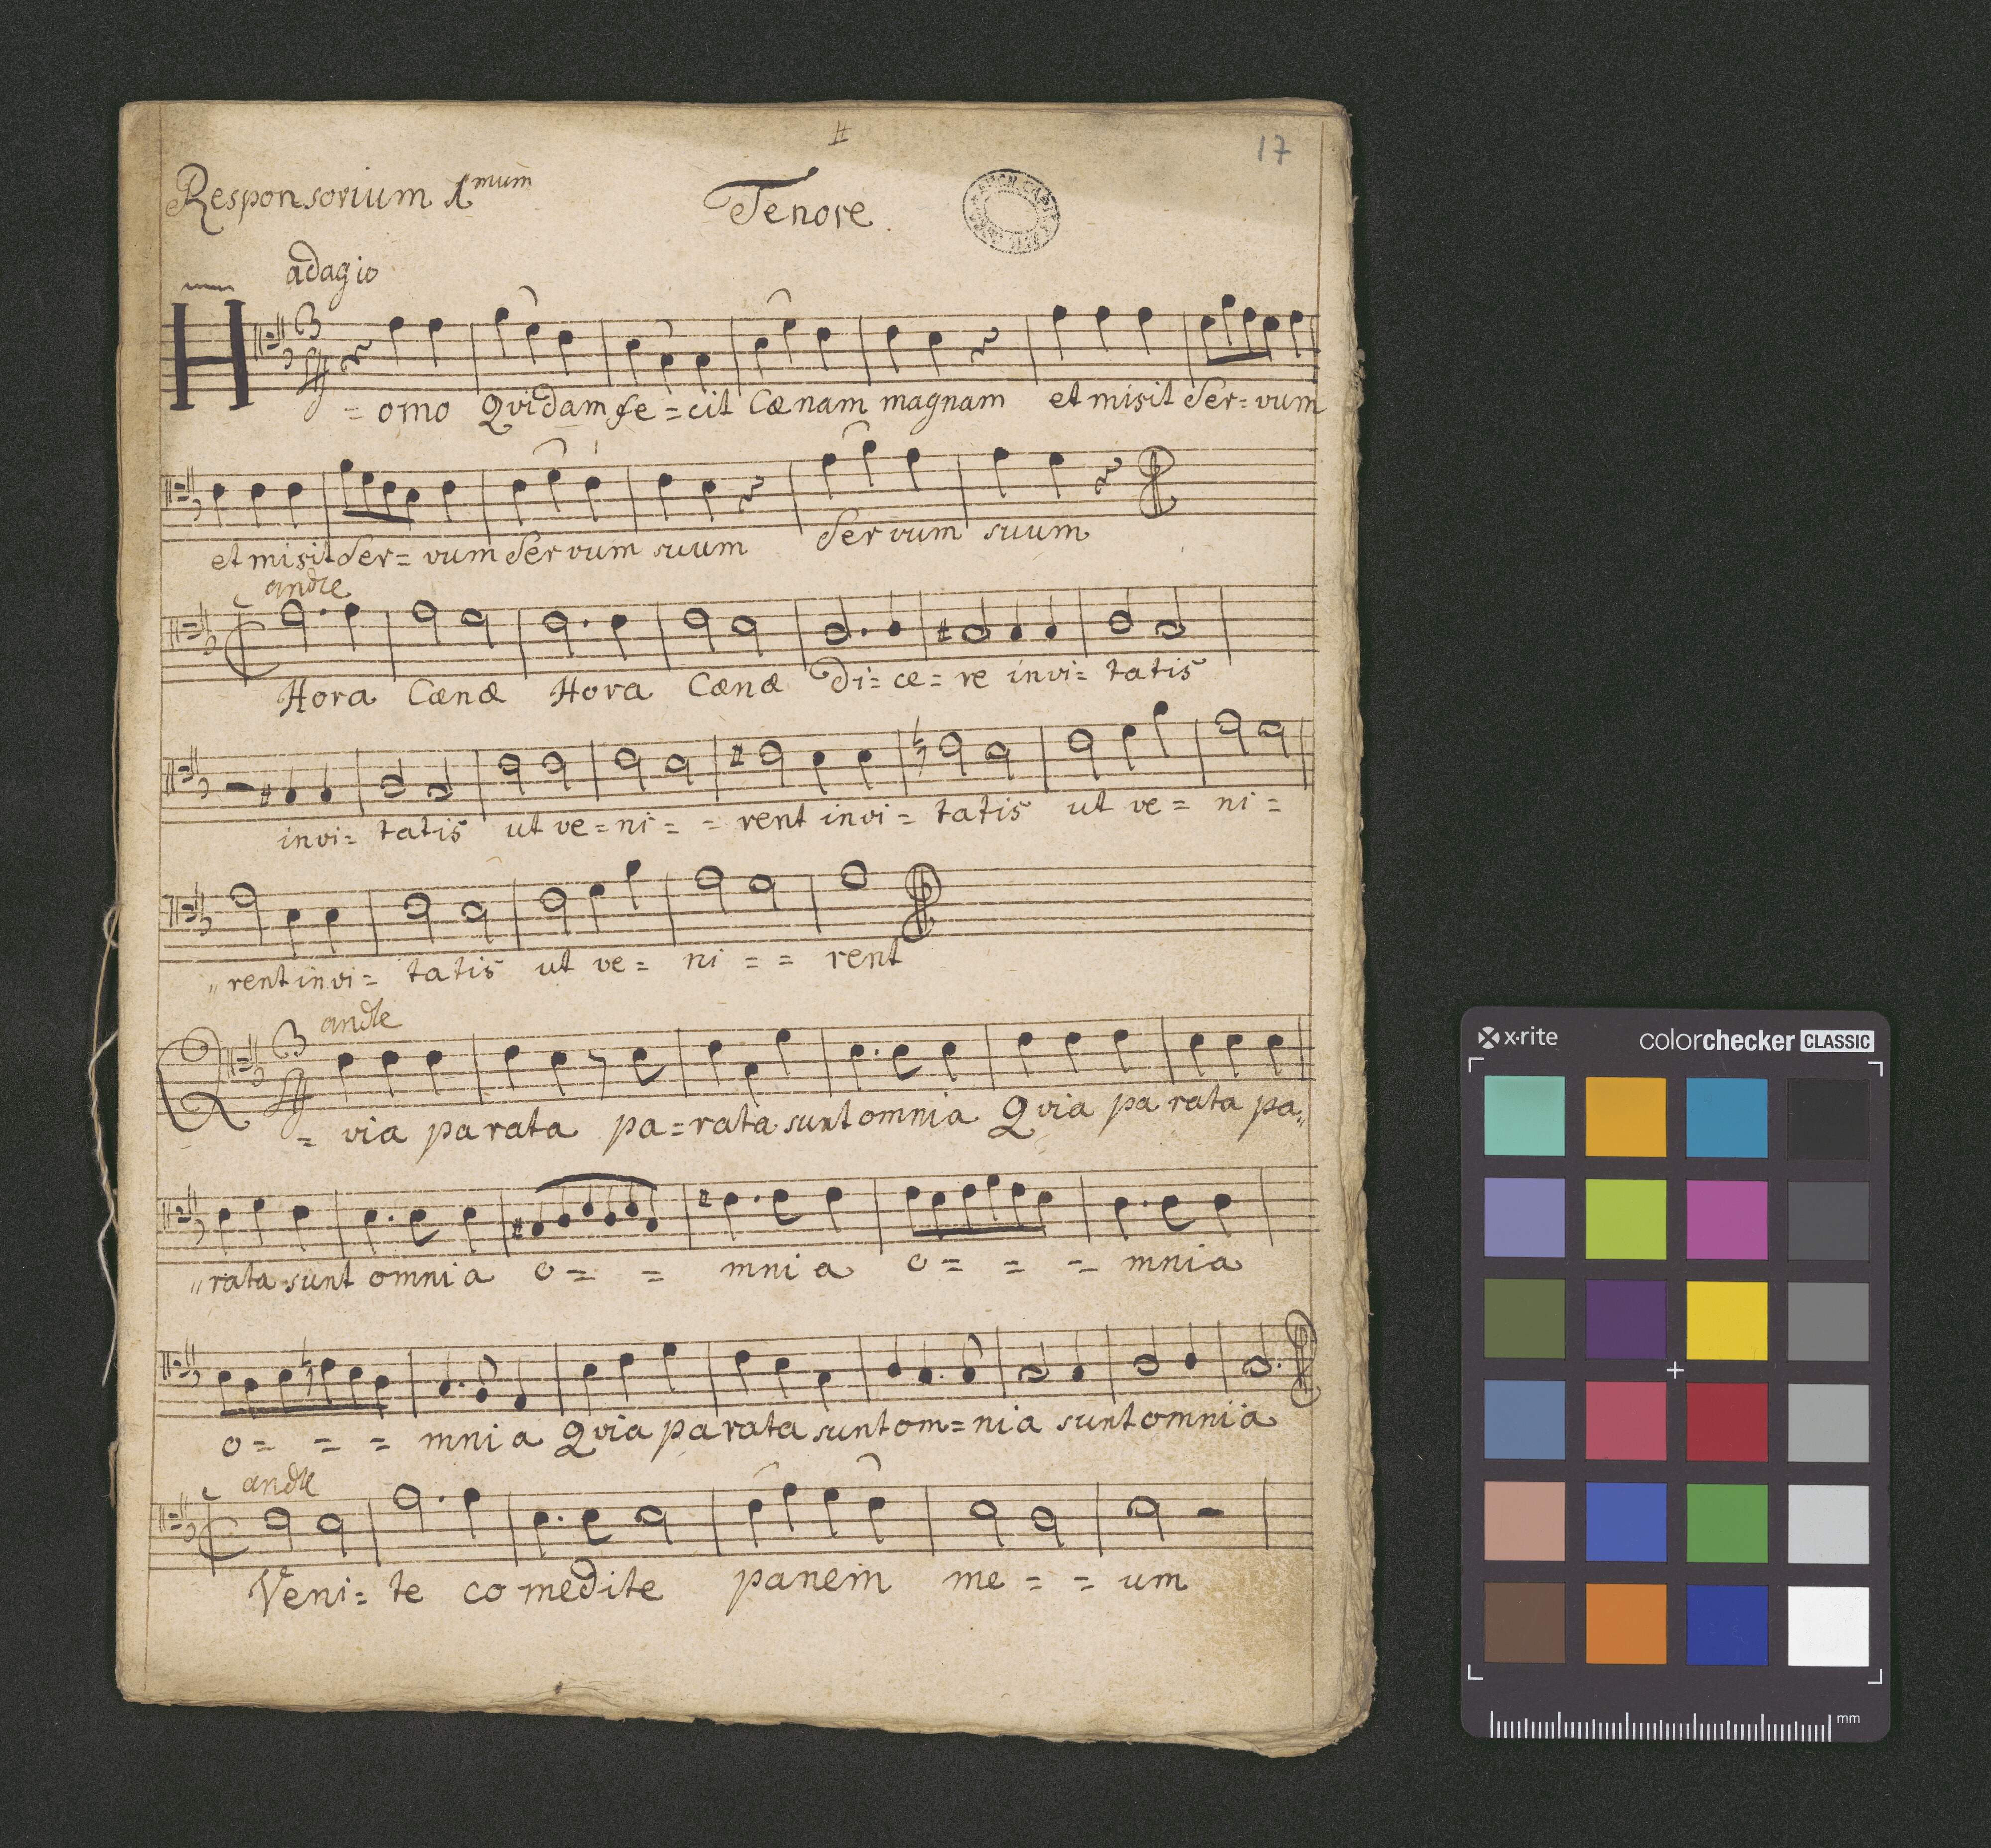 17
Responsorium 1mum
Tenore.
adagio
H = omo Qvidam fe = cit Cænam magnam et misit Ser = vum
et misit Ser = vum Servum suum Servum suum
andte
Hora Cænæ Hora Cænæ di = ce = re invi = tatis
invi = tatis ut ve = ni = = rent invi = tatis ut ve = ni =
" rent invi = tatis ut ve = ni = = rent
andte
Q = via parata pa = rata sunt omnia Qvia pa rata pa "
" rata sunt omnia o = = mnia o = = = mnia
o = = = mnia Qvia parata sunt om = nia sunt omnia
andte
Veni = te comedite panem me = = um
x·rite
colorchecker CLASSIC
mm